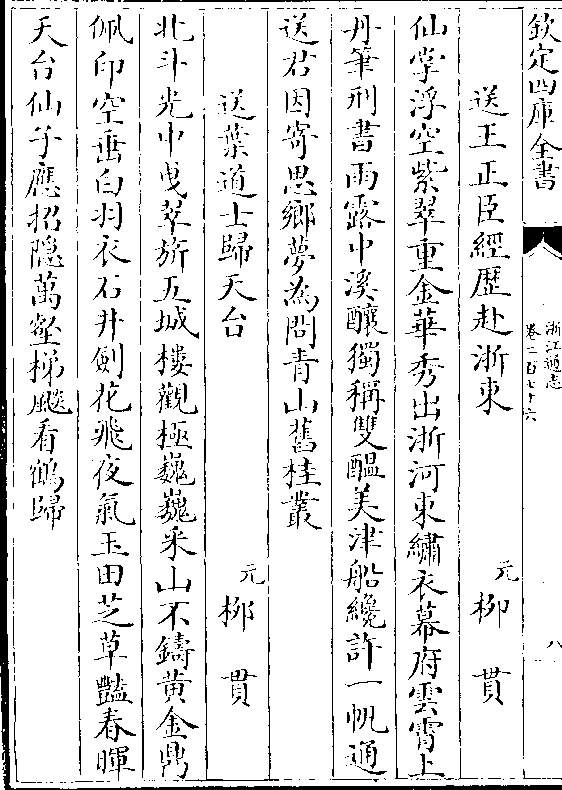 欽定四庫全書
浙江通志
卷二百七十六
八
送王正臣經歷赴浙東
元柳貫
仙掌浮空紫翠重金華秀出浙河東繡衣幕府雲霄上
丹筆刑書雨露中溪釀獨稱雙醞美津船纔許一帆通
送君因寄思鄉夢為問青山舊桂叢
送葉道士歸天台
元柳貫
北斗光中曳翠旂五城樓觀極巍巍采山不鑄黄金鼎
佩印空垂白羽衣石井劍花飛夜氣玉田芝草豔春暉
天台仙子應招隠萬壑梯飈看鶴歸